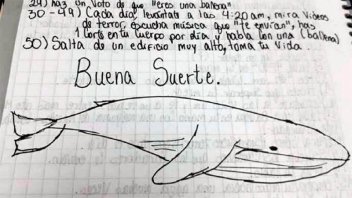 29) haz un Voto de que "eres una ballena".
30-49) Cada día levántate a las 4:20am, mira Videos
de terror, escucha música que "te envían", haz
1 corte en tu cuerpo por día y habla con una (ballena)
50) Salta de un edificio muy alto, toma tu Vida.
Buena Suerte.